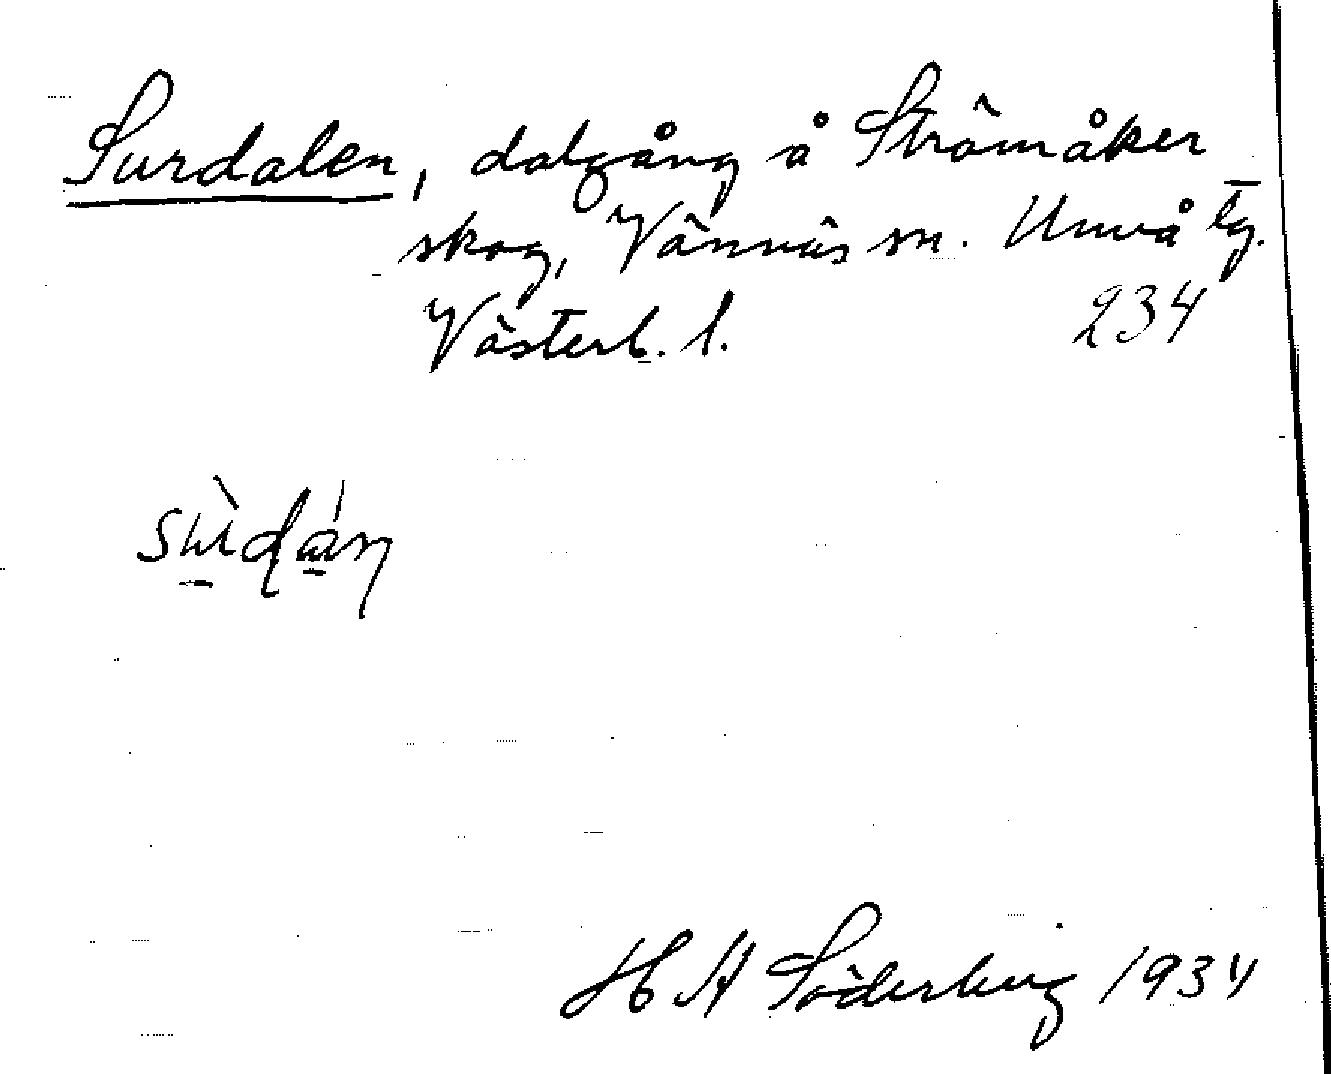 Surdalen, dalgång å Strömåker
skog, Vännäs sn. Umeå tg.
Västerb. l. 234
H A Söderberg 1934